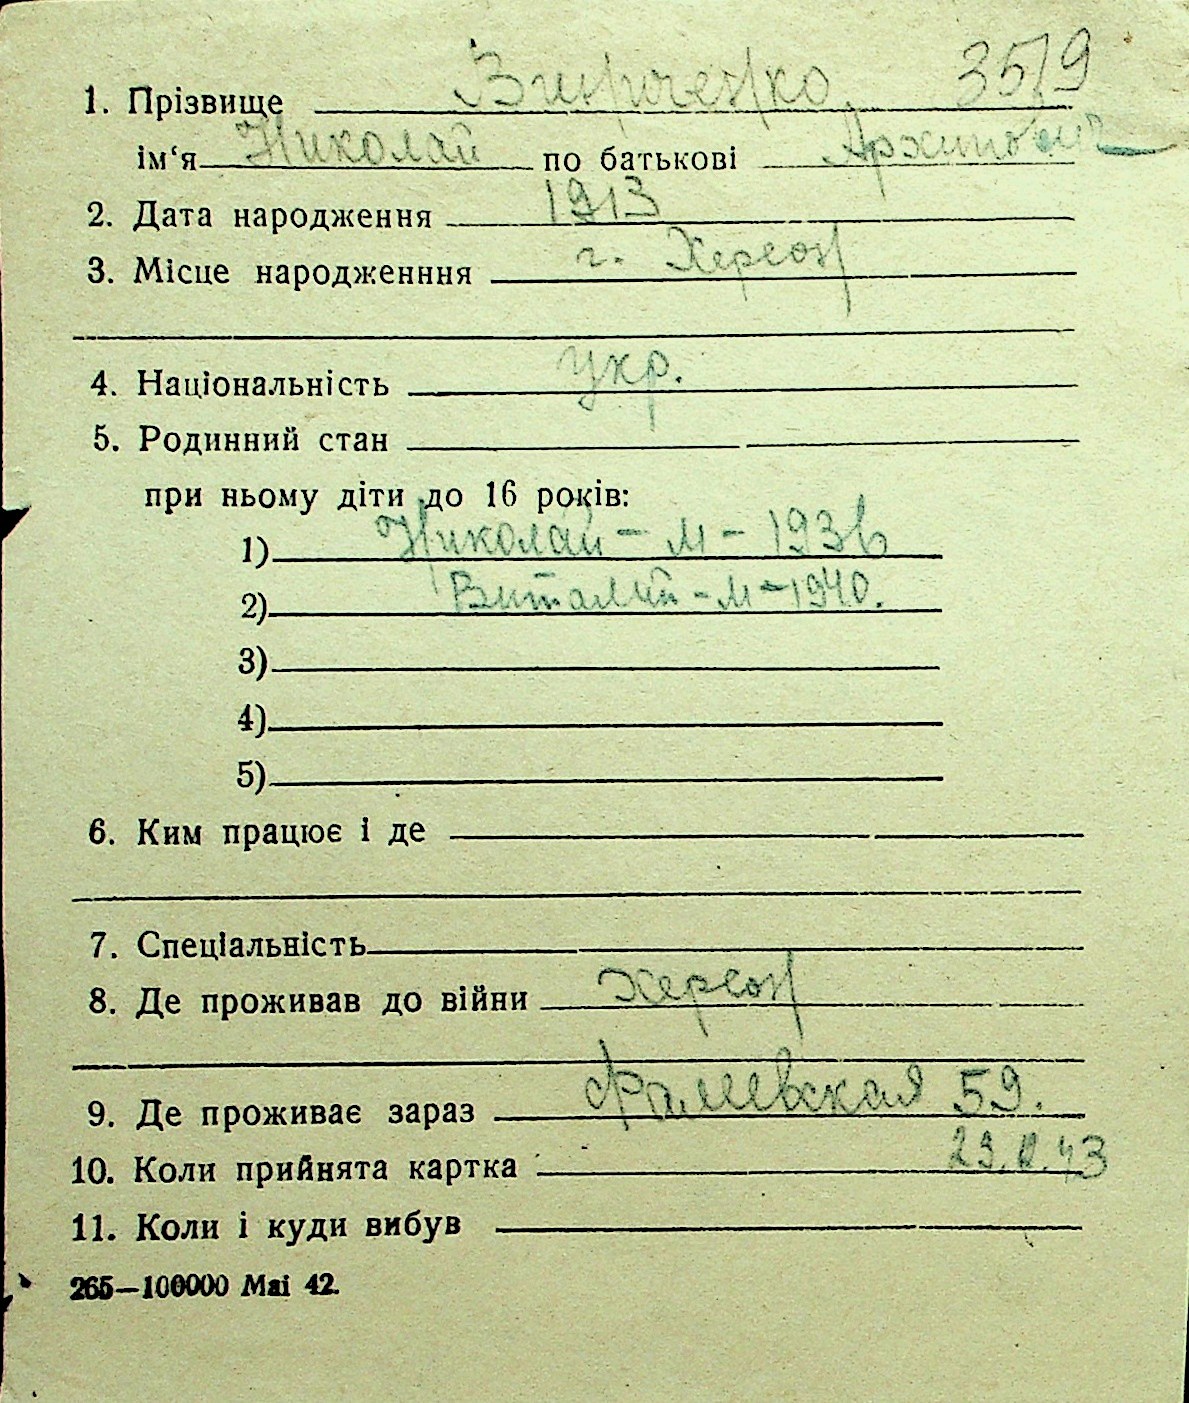 1. Прізвище 3519
ім‘я Николай по батькові Архипович
2. Дата народження 1913
3. Місце народженння г. Херсон
4. Національність укр.
5. Родинний стан
при ньому діти до 16 років:
1) Николай - м - 1936
2) Виталий - м - 1940.
3)
4)
5)
6. Ким працює і де
7. Спеціальність
8. Де проживав до війни Херсон
9. Де проживає зараз 59.
10. Коли прийнята картка
11. Коли і куди вибув
265—100000 Mai 42.